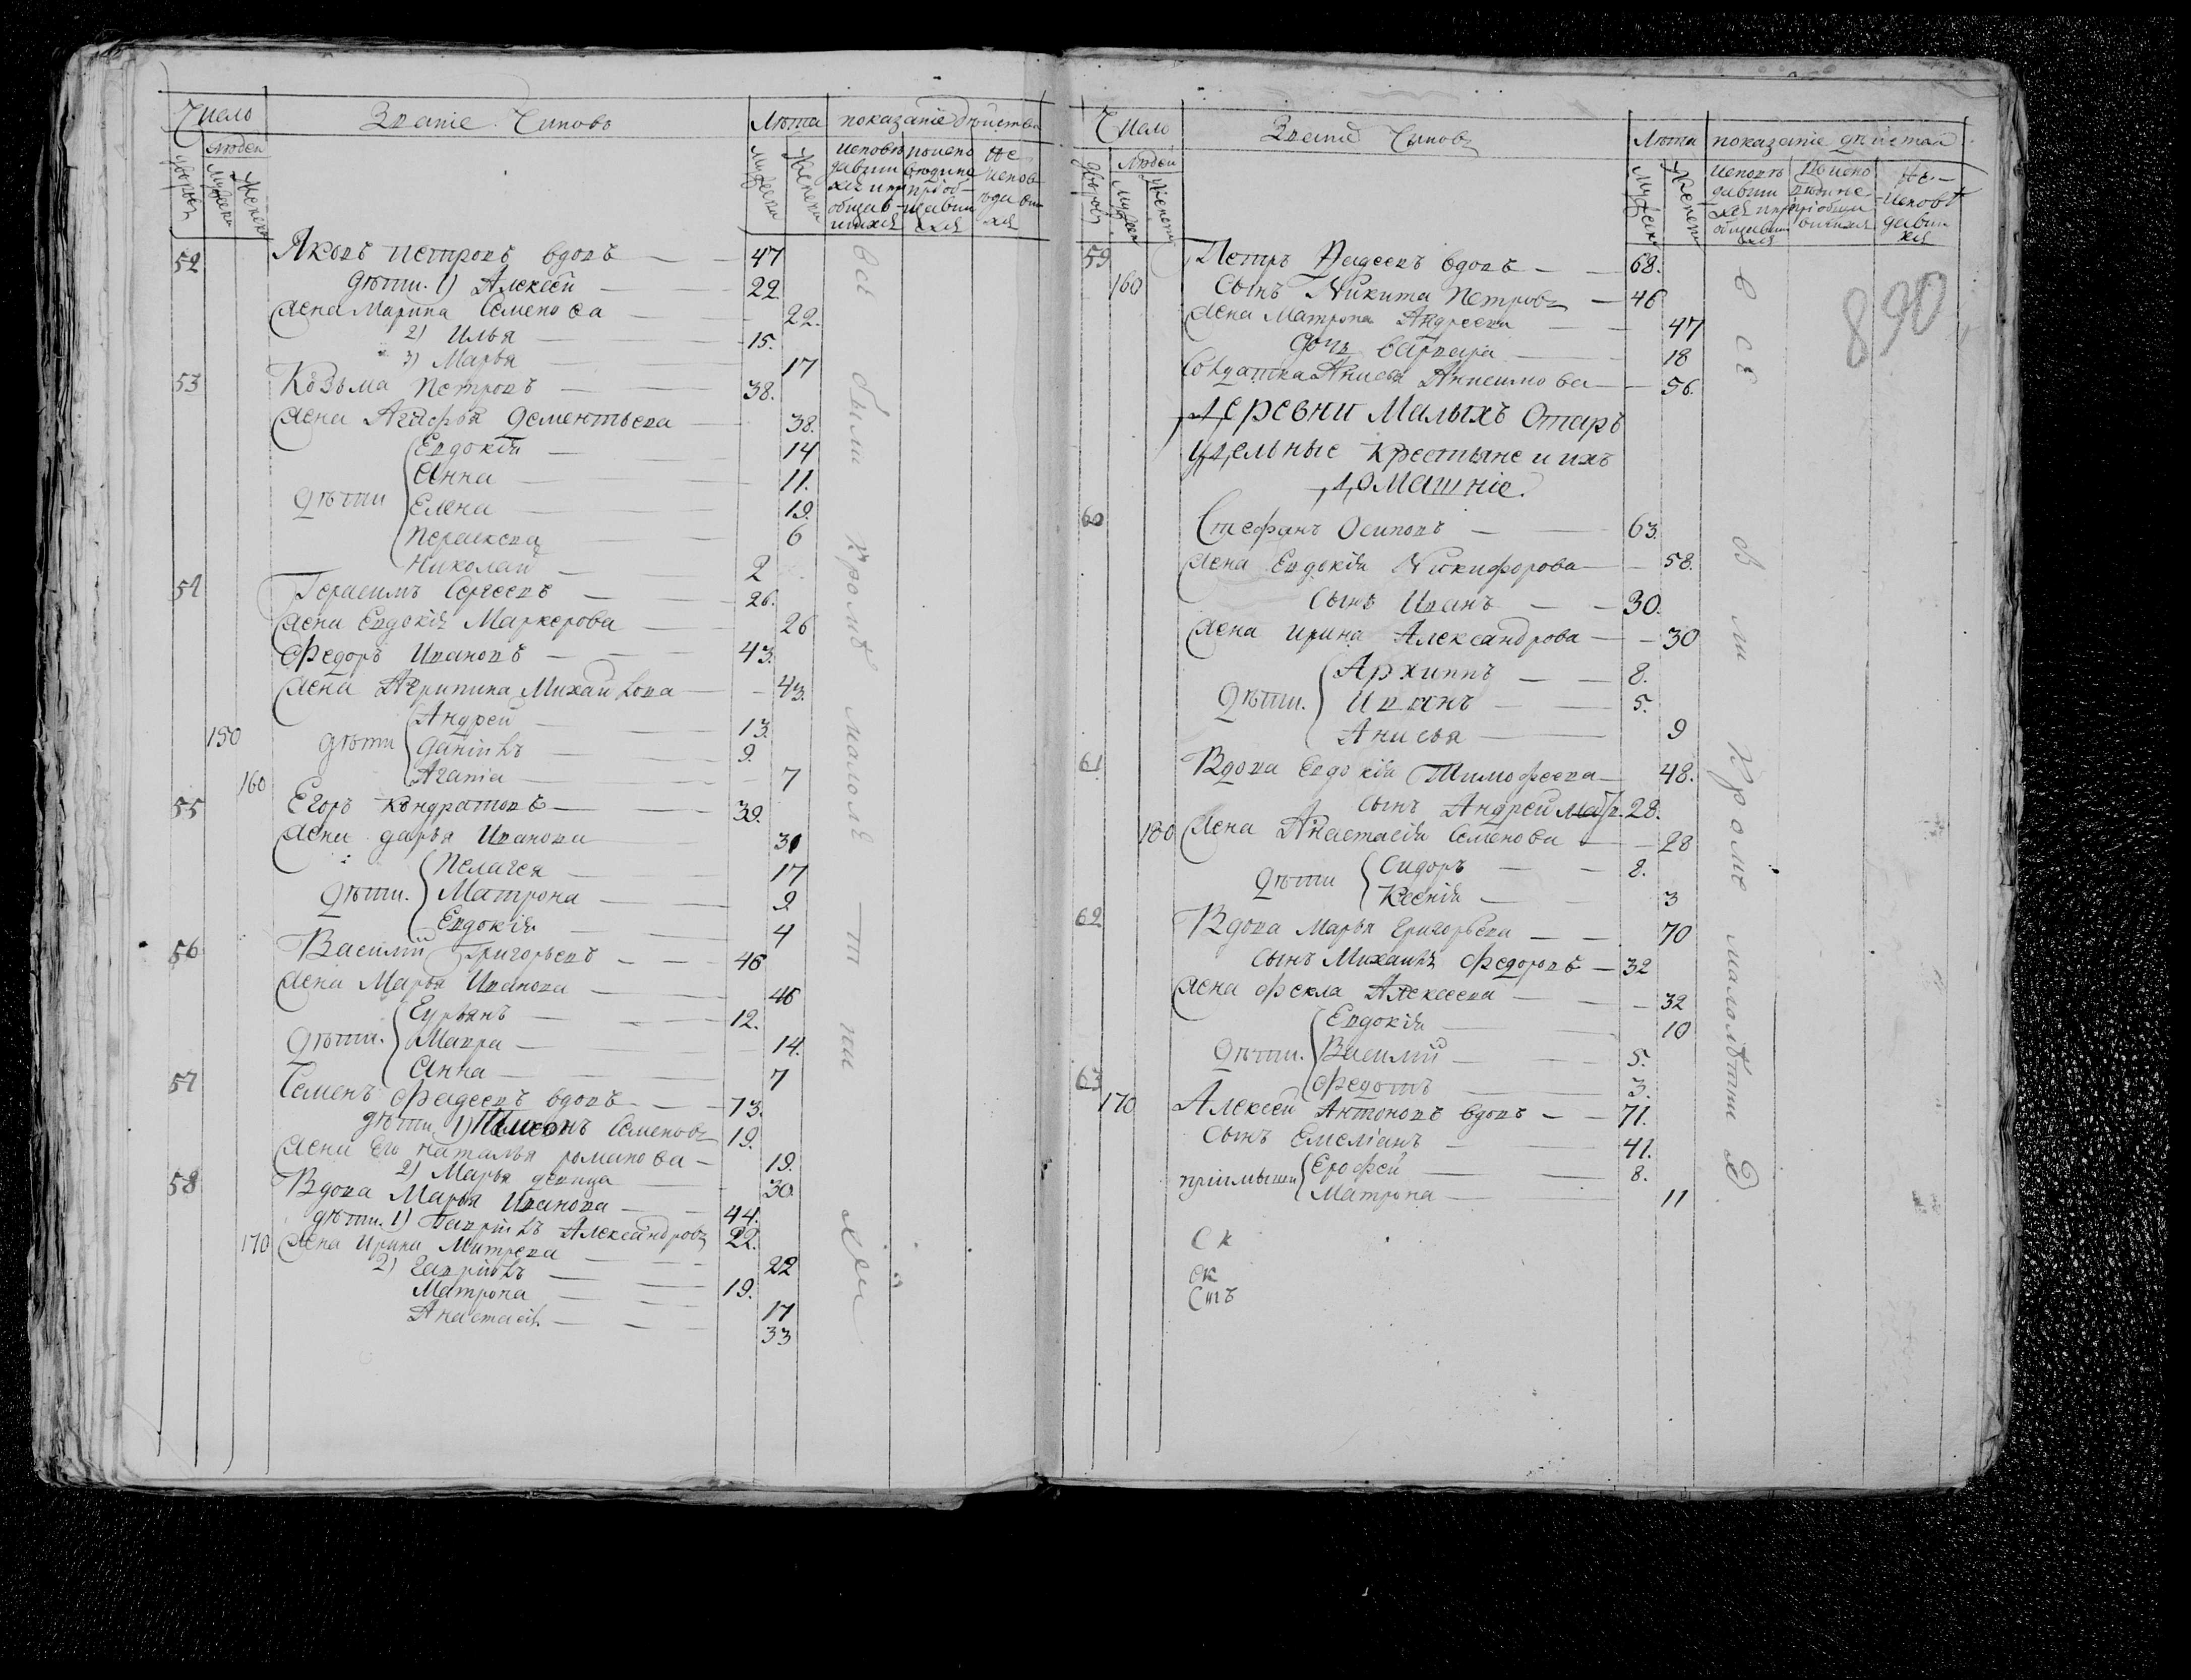 Число
Званіе Чиновъ
Лѣта
показаніе дѣйства
людей
дворы
мужеска
женска
мужеска
женска
исповѣ
давши
хся и пр
общав
шихся
Не
испов
дав
хся
52 Яковъ Петровъ вдовъ — 47
дѣти. 1) Алексѣй — 22
жена Марина Семенова — 22.
2) Илья — 15.
3) Марья — 17
53 Козьма Петровъ — 38.
жена Агафья Дементьева — 38.
Евдокія — 14
Анна — 11.
дѣти Елена — 19.
Параскева — 6
Николай — 2
54 Герасимъ Сергеевъ — 26.
жена Евдокія Маркерова — 26
Федоръ Ивановъ — 43.
жена Агрипина Михайлова — 43.
Андрей — 13.
150 дѣти Даніилъ — 9.
160 Агапіа — 7
55 Егоръ Кондратовъ — 39.
жена дарья Иванова — 30
Пелагея — 17
дѣти. Матрона — 9
Евдокія — 4
56 Василій Григорьевъ — 46
жена Марья Иванова — 46
Гурьянъ — 12.
дѣти. Мавра — 14.
Анна — 7
57 Семенъ Фадеевъ вдовъ — 73.
дѣти. 1) Семеновъ 19.
жена Его Наталья романова — 19.
2) Марья девица — 30
58 Вдова Марья Иванова — 44.
дѣти. 1) Гавріилъ Александровъ 22.
170 жена Ирина Митрева — 22
2) Гавріилъ — 19.
Матрона — 17
Анастасія — 33
всѣ были кромѣ малолѣт
Число
Званіе Чиновъ
Лѣта
показаніе дѣйства
людей
дворы
мужеска
женска
мужеска
женска
исповѣ
давши
хся и пр
общавши
хся
Не
исповѣ
давши
хся
890
59 Петръ Фадеевъ вдовъ — 68.
160 Сынъ Никита Петровъ — 46
жена Матрона Андреева — 47
дочь Варвара — 18
Солдатка Анисья Анисимова — 56.
Деревни Малыхъ Отаръ
Удельные Крестьяне и ихъ
домашніе.
60 Стефанъ Осиповъ — 63.
жена Евдокія Никифорова — 58.
Сынъ Иванъ — 30.
жена Ирина Александрова — 30
Архиппъ — 8.
дѣти. Иванъ — 5.
Анисья — 9
61 Вдова Евдокія Тимофеева — 48.
Сынъ Андрей 28.
180 жена Анастасія Семенова — 28
дѣти Сидоръ — 8.
Ксенія — 3
62 Вдова Марья Григорьева — 70
Сынъ Михаилъ Федоровъ — 32
жена Фекла Алексеева — 32
Евдокія — 10
дѣти. Василій — 5.
Федотъ — 3.
63
170 Алексѣй Антоновъ вдовъ — 71.
Сынъ Емеліанъ — 41.
пріимыши Ерофей — 8.
Матрона — 11
всѣ кромѣ малолѣтни
Ск
Ск
Стъ